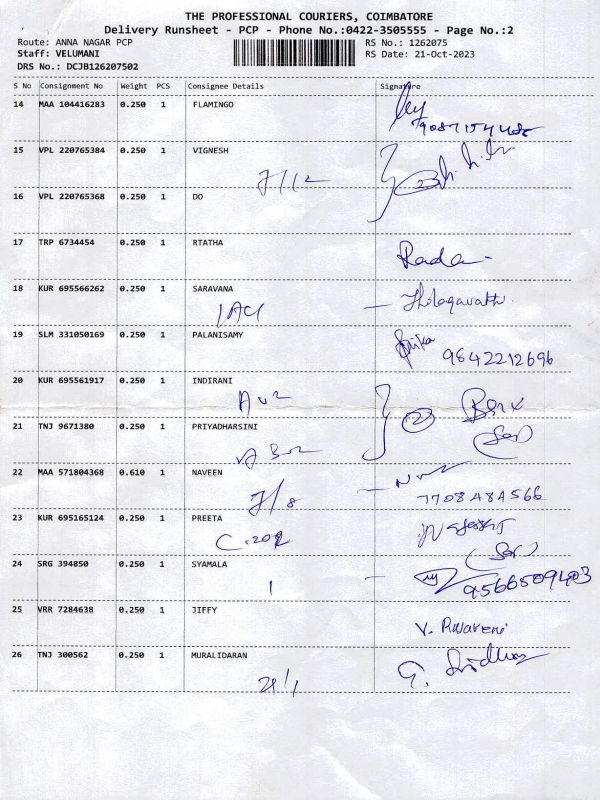 THE PROFESSIONAL COURIERS, COIMBATORE
Delivery Runsheet - PCP - Phone No.:0422-3505555 - Page No.:2
Route: ANNA NAGAR PCP
RS No.: 1262075
Staff: VELUMANI
RS Date: 21-Oct-2023
DRS No.: DCJB126207502
S No Consignment No Weight PCS Consignee Details Signature
14 MAA 104416283 0.250 1 FLAMINGO
15 VPL 220765384 0.250 1 VIGNESH
7/12
16 VPL 220765368 0.250 1 DO
17 TRP 6734454 0.250 1 RTATHA
Rada
18 KUR 695566262 0.250 1 SARAVANA
Thilagavathi
19 SLM 331050169 0.250 1 PALANISAMY
9842212696
20 KUR 695561917 0.250 1 INDIRANI
2
21 TNJ 9671380 0.250 1 PRIYADHARSINI
22 MAA 571804368 0.610 1 NAVEEN
7/8
7708484566
23 KUR 695165124 0.250 1 PREETA
C.202
24 SRG 394850 0.250 1 SYAMALA
1
9566509403
25 VRR 7284638 0.250 1 JIFFY
26 TNJ 300562 0.250 1 MURALIDARAN
G. Sridhar
21/1